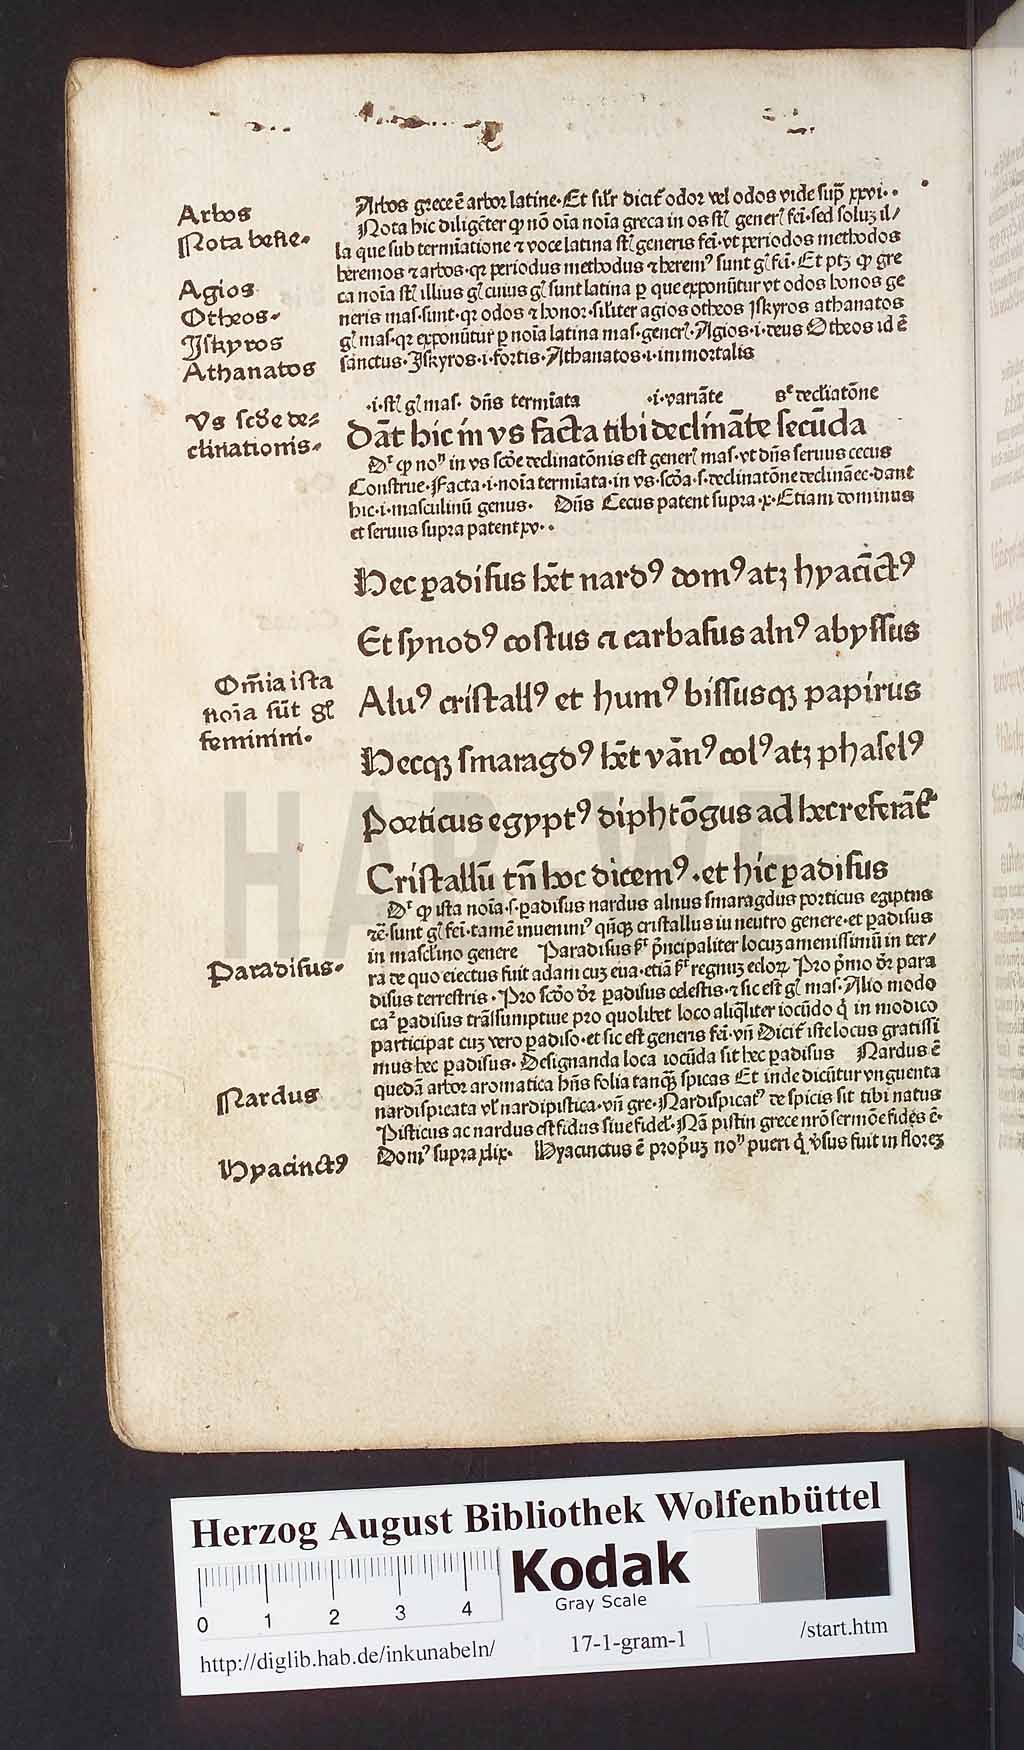 Arbos
Nota bene.
Agios
Otheos.
Iskyros
Athanatos
Arbos grece ē arbor latine. Et silr dicit odor vel odos vide sup̄ xxvi..
Nota hic diligēter ꝙ nō oīa noīa greca in os st generꝭ fēi. sed soluꝫ il/
la que sub termīatione ⁊ voce latina st generis fēi. vt periodos methodos
heremos ⁊ arbos. qꝛ periodus methodus ⁊ heremꝰ sunt gꝭ fēi. Et ptꝫ ꝙ gre
ca noīa st illius gꝭ cuius gꝭ sunt latina ꝑ que exponūtur vt odos honos ge
neris mas. sunt. qꝛ odos ⁊ honor. siliter agios otheos Iskyros athanatos
gꝭ mas. qꝛ exponūtur ꝑ noīa latina mas. generꝭ. Agios .i. deus Otheos id ē
sanctus. Iskyros .i. fortis. Athanatos .i. immortalis
Vs scde de=
clinationis.
.i. st gꝭ mas. dn̄s termīata .i. variāte se declīatōne
Dāt hic in vs facta tibi declināte secūda
Dr ꝙ non in vs scd̄e declinatōnis est generꝭ mas. vt dn̄s seruus cecus
Construe. Facta .i. noīa termīata .in vs. scd̄a .s. declinatōne declināe c. dant
hic .i. masculinū genus. Dn̄s Cecus patent supra .x. Etiam dominus
et seruus supra patent xv..
Hec ꝑadisus hēt nardꝰ domꝰ atꝫ hyacīctꝰ
Et synodꝰ costus ⁊ carbasus alnꝰ abyssus
Om̄ia ista
noīa sūt gꝭ
feminini.
Aluꝰ cristallꝰ et humꝰ bissusqꝫ papirus
Hecqꝫ smaragdꝰ hēt vānꝰ colꝰ atꝫ phaselꝰ
Porticus egyptꝰ diphtōgus ad hec referāt
Cristallū tn̄ hoc dicemꝰ. et hic ꝑadisus
Dr ꝙ ista noīa .s. ꝑadisus nardus alnus smaragdus porticus egiptus
⁊c̄. sunt gꝭ fēi. tamē inuenimꝰ qn̄qꝫ cristallus in neutro genere. et ꝑadisus
in mascl̄ino genere Paradisus pr̄ p̄ncipaliter locuꝫ amenissimū in ter/
Paradisus.
ra de quo eiectus fuit adam cuꝫ eua. etiā pr̄ regnuꝫ celoꝝ. Pro p̄mo dr̄ para
disus terrestris. Pro scd̄o dr̄ ꝑadisus celestis. ⁊ sic est gꝭ mas. Alio modo
caꝰ ꝑadisus trāssumptiue pro quolibet loco aliqliter iocūdo q̄ in modico
participat cuꝫ vero ꝑadiso. et sic est generis fēi. vn̄ Dicit iste locus gratissi
mus hec ꝑadisus. Designanda loca iocūda sit hec ꝑadisus Nardus ē
Nardus
quedā arbor aromatica hn̄s folia tanqꝫ spicas Et inde dicūtur vnguenta
nardispicata vl̄ nardipistica. vn̄ gre. Nardispicatꝰ de spicis sit tibi natus
Pisticus ac nardus est fidus siue fidelꝭ. Nā pistin grece nr̄o sermōe fides ē.
Hyacinctꝰ
Domꝰ supra xlix. Hyacinctus ē propriuꝫ non pueri q̄ v̄sus fuit in florez
Herzog August Bibliothek Wolfenbüttel
0 1 2 3 4
Kodak
Gray Scale
http://diglib.hab.de/inkunabeln/ 17-1-gram-1 /start.htm